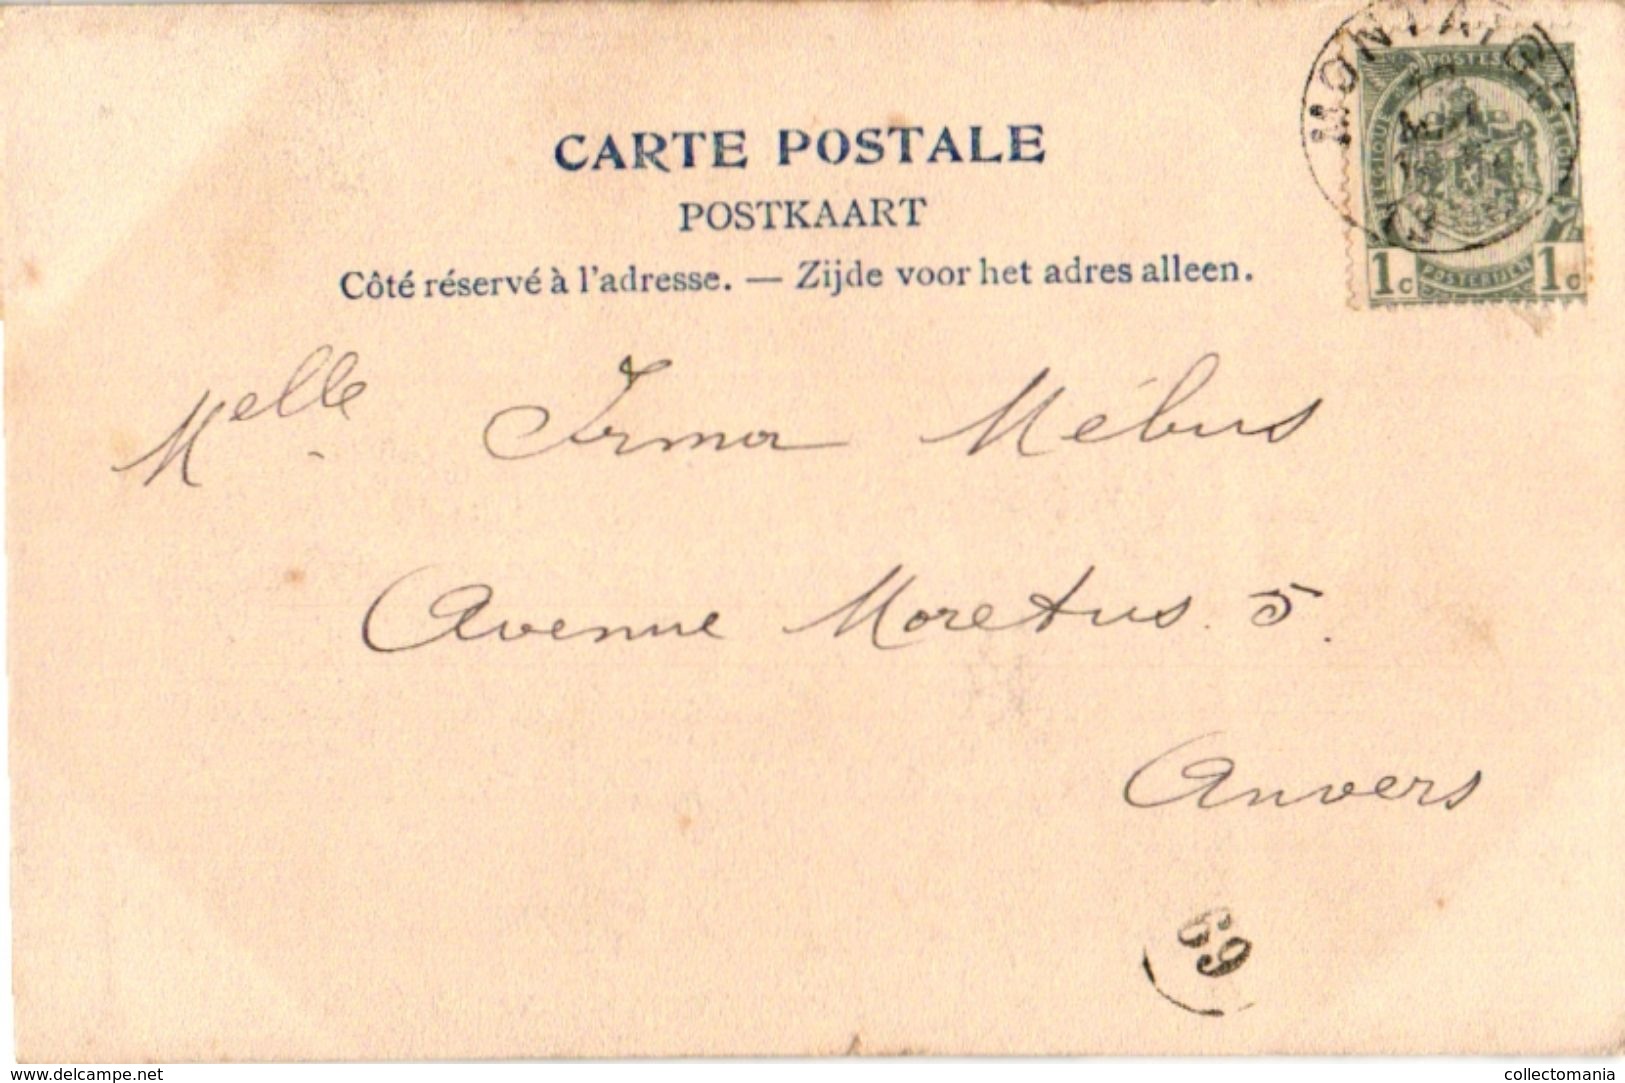 MONTAIGU
POSTES
BELGIQUE
1c POSTERIJEN 1c
CARTE POSTALE
POSTKAART
Côté réservé à l'adresse. — Zijde voor het adres alleen.
Melle Irma Mébus
Avenue Moretus 5.
Anvers
69
www.delcampe.net
collectomania